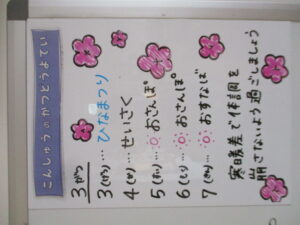 こんしゅうのかつどうよてい
3がつ
3(げつ)…ひなまつり
4(か)…せいさく
5(すい)…おさんぽ
6(もく)…おさんぽ
7(きん)…おすなば
寒暖差で体調を
崩さないよう過ごしましょう